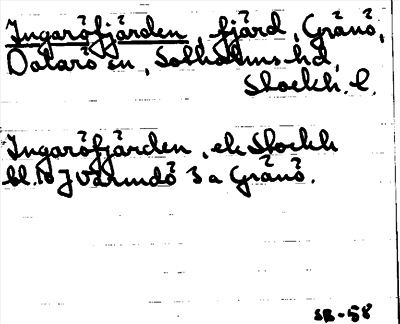 Ingaröfjärden, fjärd, Gränö,
Dalarö sn, Sotholms hd,
Stockh. l.
Ingaröfjärden, ek Stockh
bl. 10 J Värmdö 3 a Gränö.
SB-58